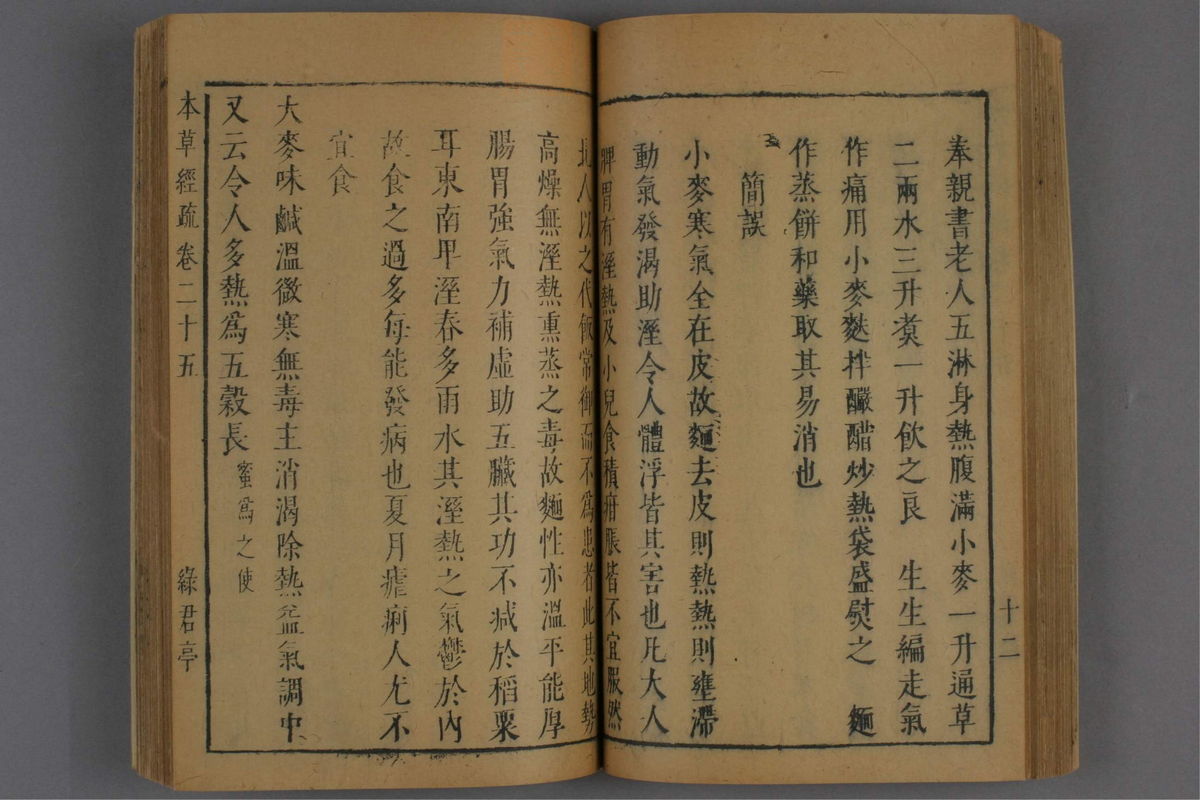 奉親書老人五淋身熱腹滿小麥一升通草
二兩水三升煑一升飲之良　生生編走氣
作痛用小麥麩拌釅醋炒熱袋盛熨之　麵
作蒸餅和藥取其易消也
簡誤
小麥寒氣全在皮故麵去皮則熱熱則壅滯
動氣發渴助溼令人體浮皆其害也凡大人
脾胃有溼熱及小兒食積疳脹皆不宜服然
北人以之代飯常御而不爲患者此其地勢
高燥無溼熱熏蒸之毒故麵性亦溫平能厚
腸胃強氣力補虛助五臟其功不減於稻粟
耳東南卑溼春多雨水其溼熱之氣鬱於內
故食之過多每能發病也夏月瘧痢人尤不
宜食
大麥味鹹溫微寒無毒主消渴除熱益氣調中
又云令人多熱爲五穀長蜜爲之使
本草經疏卷二十五　綠君亭
十二